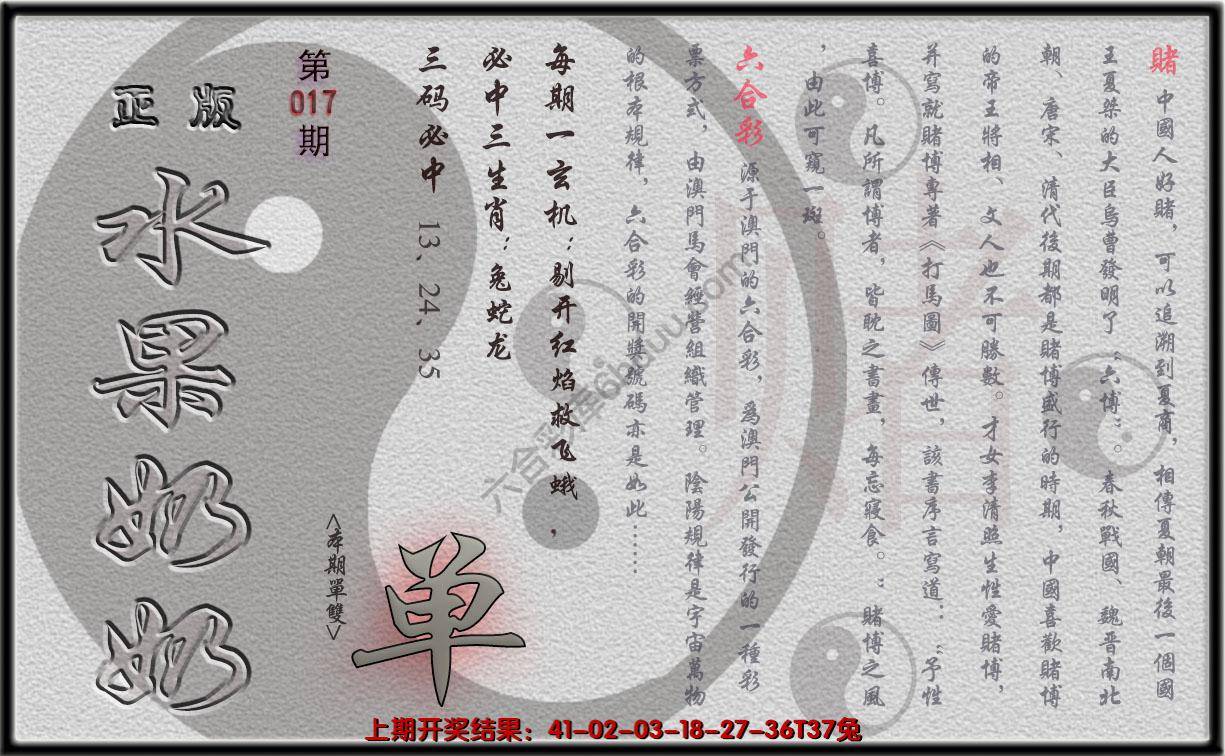 賭 中國人好賭，可以追溯到夏商，相傳夏朝最後一個國
王夏桀的大臣烏曹發明了“六博”。春秋戰國、魏晋南北
朝、唐宋、清代後期都是賭博盛行的時期，中國喜歡賭博
的帝王將相、文人也不可勝數。才女李清照生性愛賭博，
并寫就賭博專著《打馬圖》傳世，該書序言寫道：“予性
喜博。凡所謂博者，皆耽之書畫，每忘寢食。”賭博之風
，由此可窺一斑。
六合彩 源于澳門的六合彩，爲澳門公開發行的一種彩
票方式，由澳門馬會經營組織管理。陰陽規律是宇宙萬物
的根本規律，六合彩的開獎號碼亦是如此……
每期一玄机：剔开红焰救飞蛾，
必中三生肖：兔蛇龙
三码必中 13、24、35
第017期
正版
水果奶奶
<本期單雙>
单
赌
六合彩库6hduu.com
上期开奖结果：41-02-03-18-27-36T37兔